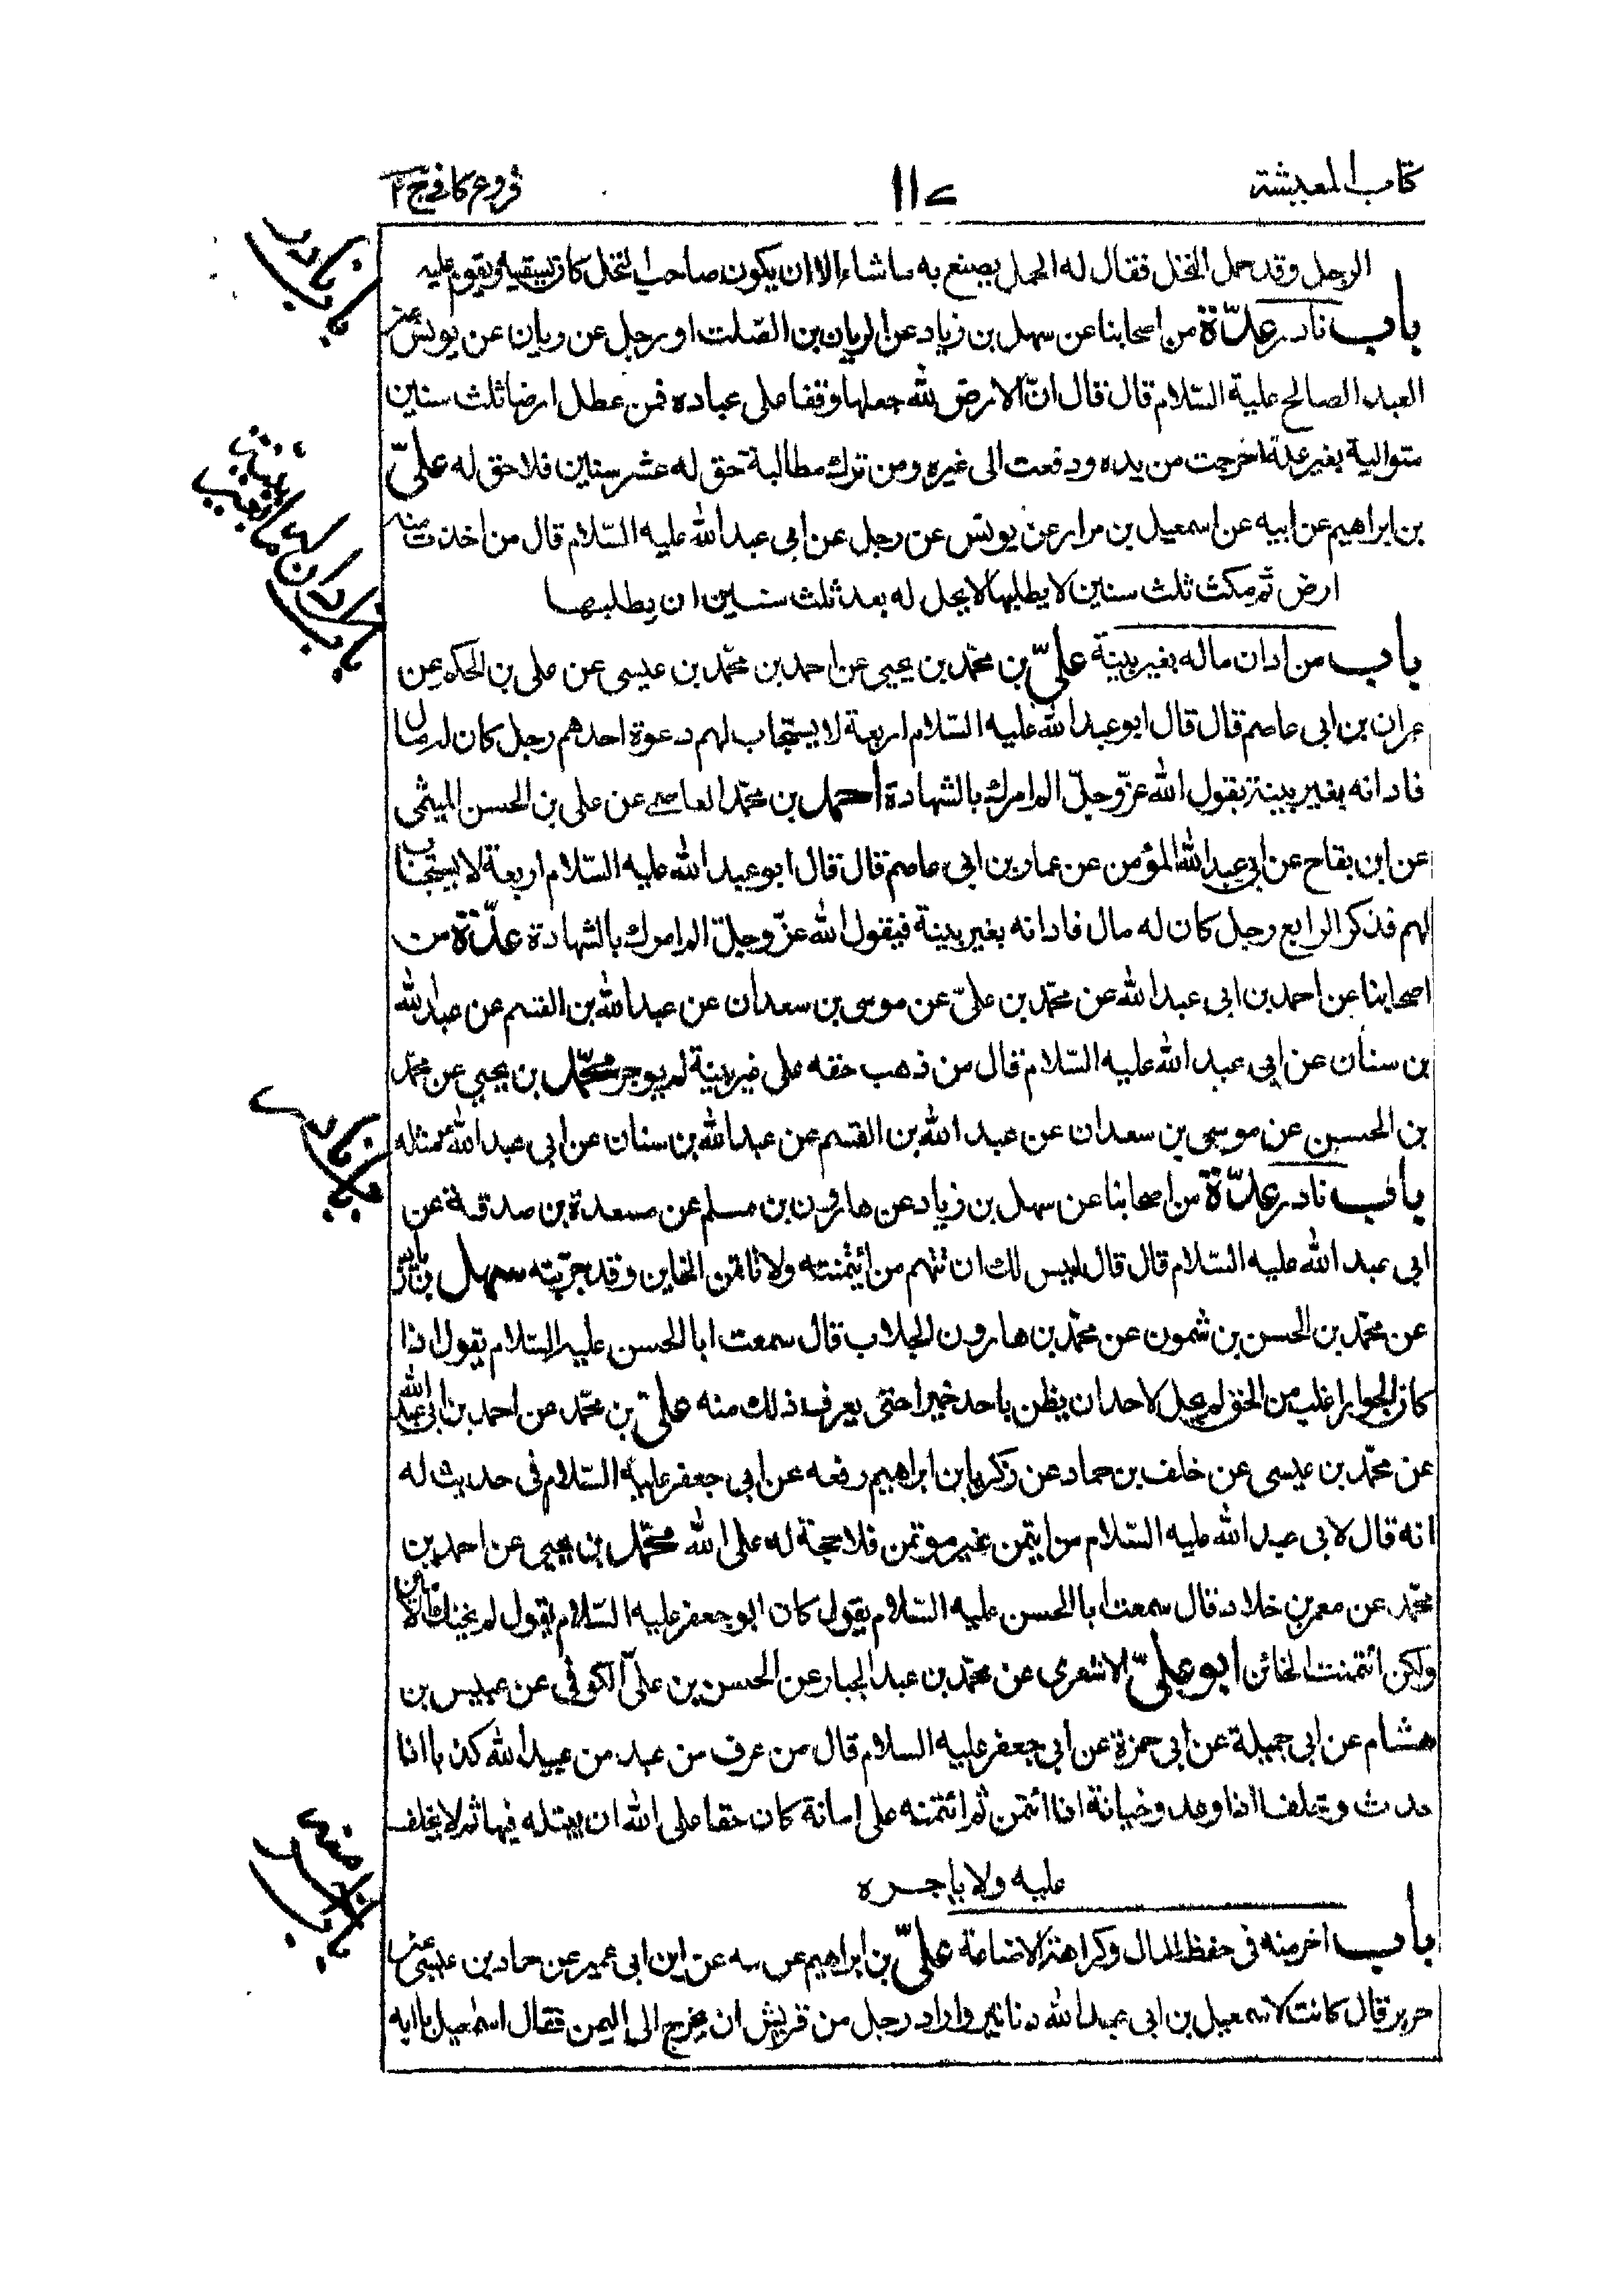 كتاب المعيشة
١١٧
فروع كافي ج ٢
الرجل وقد حمل النخل فقال له الحمل يصنع به ما شاء الا ان يكون صاحب النخل كان يسقيه ويقوم عليه
باب نادر عدّة من اصحابنا عن سهل بن زياد عن الريان بن الصّلت او رجل عن ريان عن يونس عن
العبد الصالح عليه السّلام قال قال انّ الارض لله جعلها وقفا على عباده فمن عطل ارضا ثلث سنين
متوالية بغير علة اخرجت من يده ودفعت الى غيره ومن ترك مطالبة حق له عشر سنين فلا حق له علىّ
بن ابراهيم عن ابيه عن اسمعيل بن مرار عن يونس عن رجل عن ابى عبد الله عليه السّلام قال من اخذت منه
ارض ثم مكث ثلث سنين لا يطلبها لا يحل له بعد ثلث سنين ان يطلبها
باب من ادان ماله بغير بينة علىّ بن محمّد بن يحيى عن احمد بن محمّد بن عيسى عن على بن الحكم عن
عمران بن ابى عاصم قال قال ابو عبد الله عليه السّلام اربعة لا يستجاب لهم دعوة احدهم رجل كان له مال
فادانه بغير بينة يقول الله عزّ وجلّ الم امرك بالشهادة احمد بن محمّد العاصمى عن على بن الحسن الميثمى
عن ابن بقاح عن ابى عبد الله المؤمن عن عمار بن ابى عاصم قال قال ابو عبد الله عليه السّلام اربعة لا يستجاب
لهم فذكر الرابع رجل كان له مال فادانه بغير بينة فيقول الله عزّ وجلّ الم امرك بالشهادة عدّة من
اصحابنا عن احمد بن ابى عبد الله عن محمّد بن علىّ عن موسى بن سعدان عن عبد الله بن القسم عن عبد الله
بن سنان عن ابى عبد الله عليه السّلام قال من ذهب حقه على غير بينة لم يوجر محمّد بن يحيى عن محمّد
بن الحسين عن موسى بن سعدان عن عبد الله بن القسم عن عبد الله بن سنان عن ابى عبد الله ع مثله
باب نادر عدّة من اصحابنا عن سهل بن زياد عن هارون بن مسلم عن مسعدة بن صدقة عن
ابى عبد الله عليه السّلام قال قال ليس لك ان تتهم من ائتمنته ولا تاتمن الخاين وقد جرّبته سهل بن زياد
عن محمّد بن الحسن بن شمون عن محمّد بن هارون الجلاب قال سمعت ابا الحسن عليه السّلام يقول اذا
كان الجور اغلب من الحق لم يحل لاحد ان يظن باحد خيرا حتى يعرف ذلك منه علىّ بن محمّد عن احمد بن ابى عبد الله
عن محمّد بن عيسى عن خلف بن حماد عن زكريا بن ابراهيم رفعه عن ابى جعفر عليه السّلام فى حديث له
انه قال لابى عبد الله عليه السّلام من ايتمن غير موتمن فلا حجة له على الله محمّد بن يحيى عن احمد بن
محمّد عن معمر بن خلاد قال سمعت ابا الحسن عليه السّلام يقول كان ابو جعفر عليه السّلام يقول لم يخنك الامين
ولكن ائتمنت الخائن ابو علىّ الاشعرى عن محمّد بن عبد الجبار عن الحسن بن علىّ الكوفى عن عبيس بن
هشام عن ابى جميلة عن ابى حمزة عن ابى جعفر عليه السلام قال من عرف من عبد من عبيد الله كذبا اذا
حدث وتخلفا اذا وعد وخيانة اذا ائتمن ثم ائتمنه على امانة كان حقا على الله ان يبتليه فيها ثم لا يخلف
عليه ولا ياجره
باب اخر منه فى حفظ المال وكراهة الاضاعة علىّ بن ابراهيم عن ابيه عن ابن ابى عمير عن حماد بن عيسى عن
حريز قال كانت لاسمعيل بن ابى عبد الله دنانير واراد رجل من قريش ان يخرج الى اليمن فقال اسمعيل يا ابه
باب نادر
باب نادر